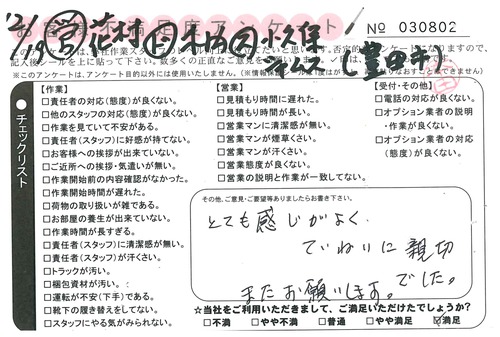 お客様満足度アンケート
No 030802
'21/1/9 ㊡花村
㊤
㊅小久保
(豊田市)
記入後シールを上に貼って下さい。
※このアンケートは、アンケート目的以外には使用しません。
チェックリスト
【作業】
□責任者の対応(態度)が良くない。
□他のスタッフの対応(態度)が良くない。
□作業を見ていて不安がある。
□責任者(スタッフ)に好感が持てない。
□お客様への挨拶が出来ていない。
□ご近所への挨拶・気遣いが無い。
□作業開始前の内容確認がなかった。
□作業開始時間が遅れた。
□荷物の取り扱いが雑である。
□お部屋の養生が出来ていない。
□作業時間が長すぎる。
□責任者(スタッフ)に清潔感が無い。
□責任者(スタッフ)が汗くさい。
□トラックが汚い。
□梱包資材が汚い。
□運転が不安(下手)である。
□靴下の履き替えをしてない。
□スタッフにやる気がみられない。
【営業】
□見積もり時間に遅れた。
□見積もり時間が長い。
□営業マンに清潔感が無い。
□営業マンが煙草くさい。
□営業マンが汗くさい。
□営業態度が良くない。
□営業の説明と作業が一致してない。
【受付・その他】
□電話の対応が良くない。
□オプション業者の説明
・作業が良くない。
□オプション業者の対応
(態度)が良くない。
その他、ご意見・ご要望等ありましたらお書き下さい。
とても感じがよく、
ていねいに親切
でした。
またお願いします。
☆当社をご利用いただきまして、ご満足いただけたでしょうか?
□不満 □やや不満 □普通 □やや満足 ☑満足